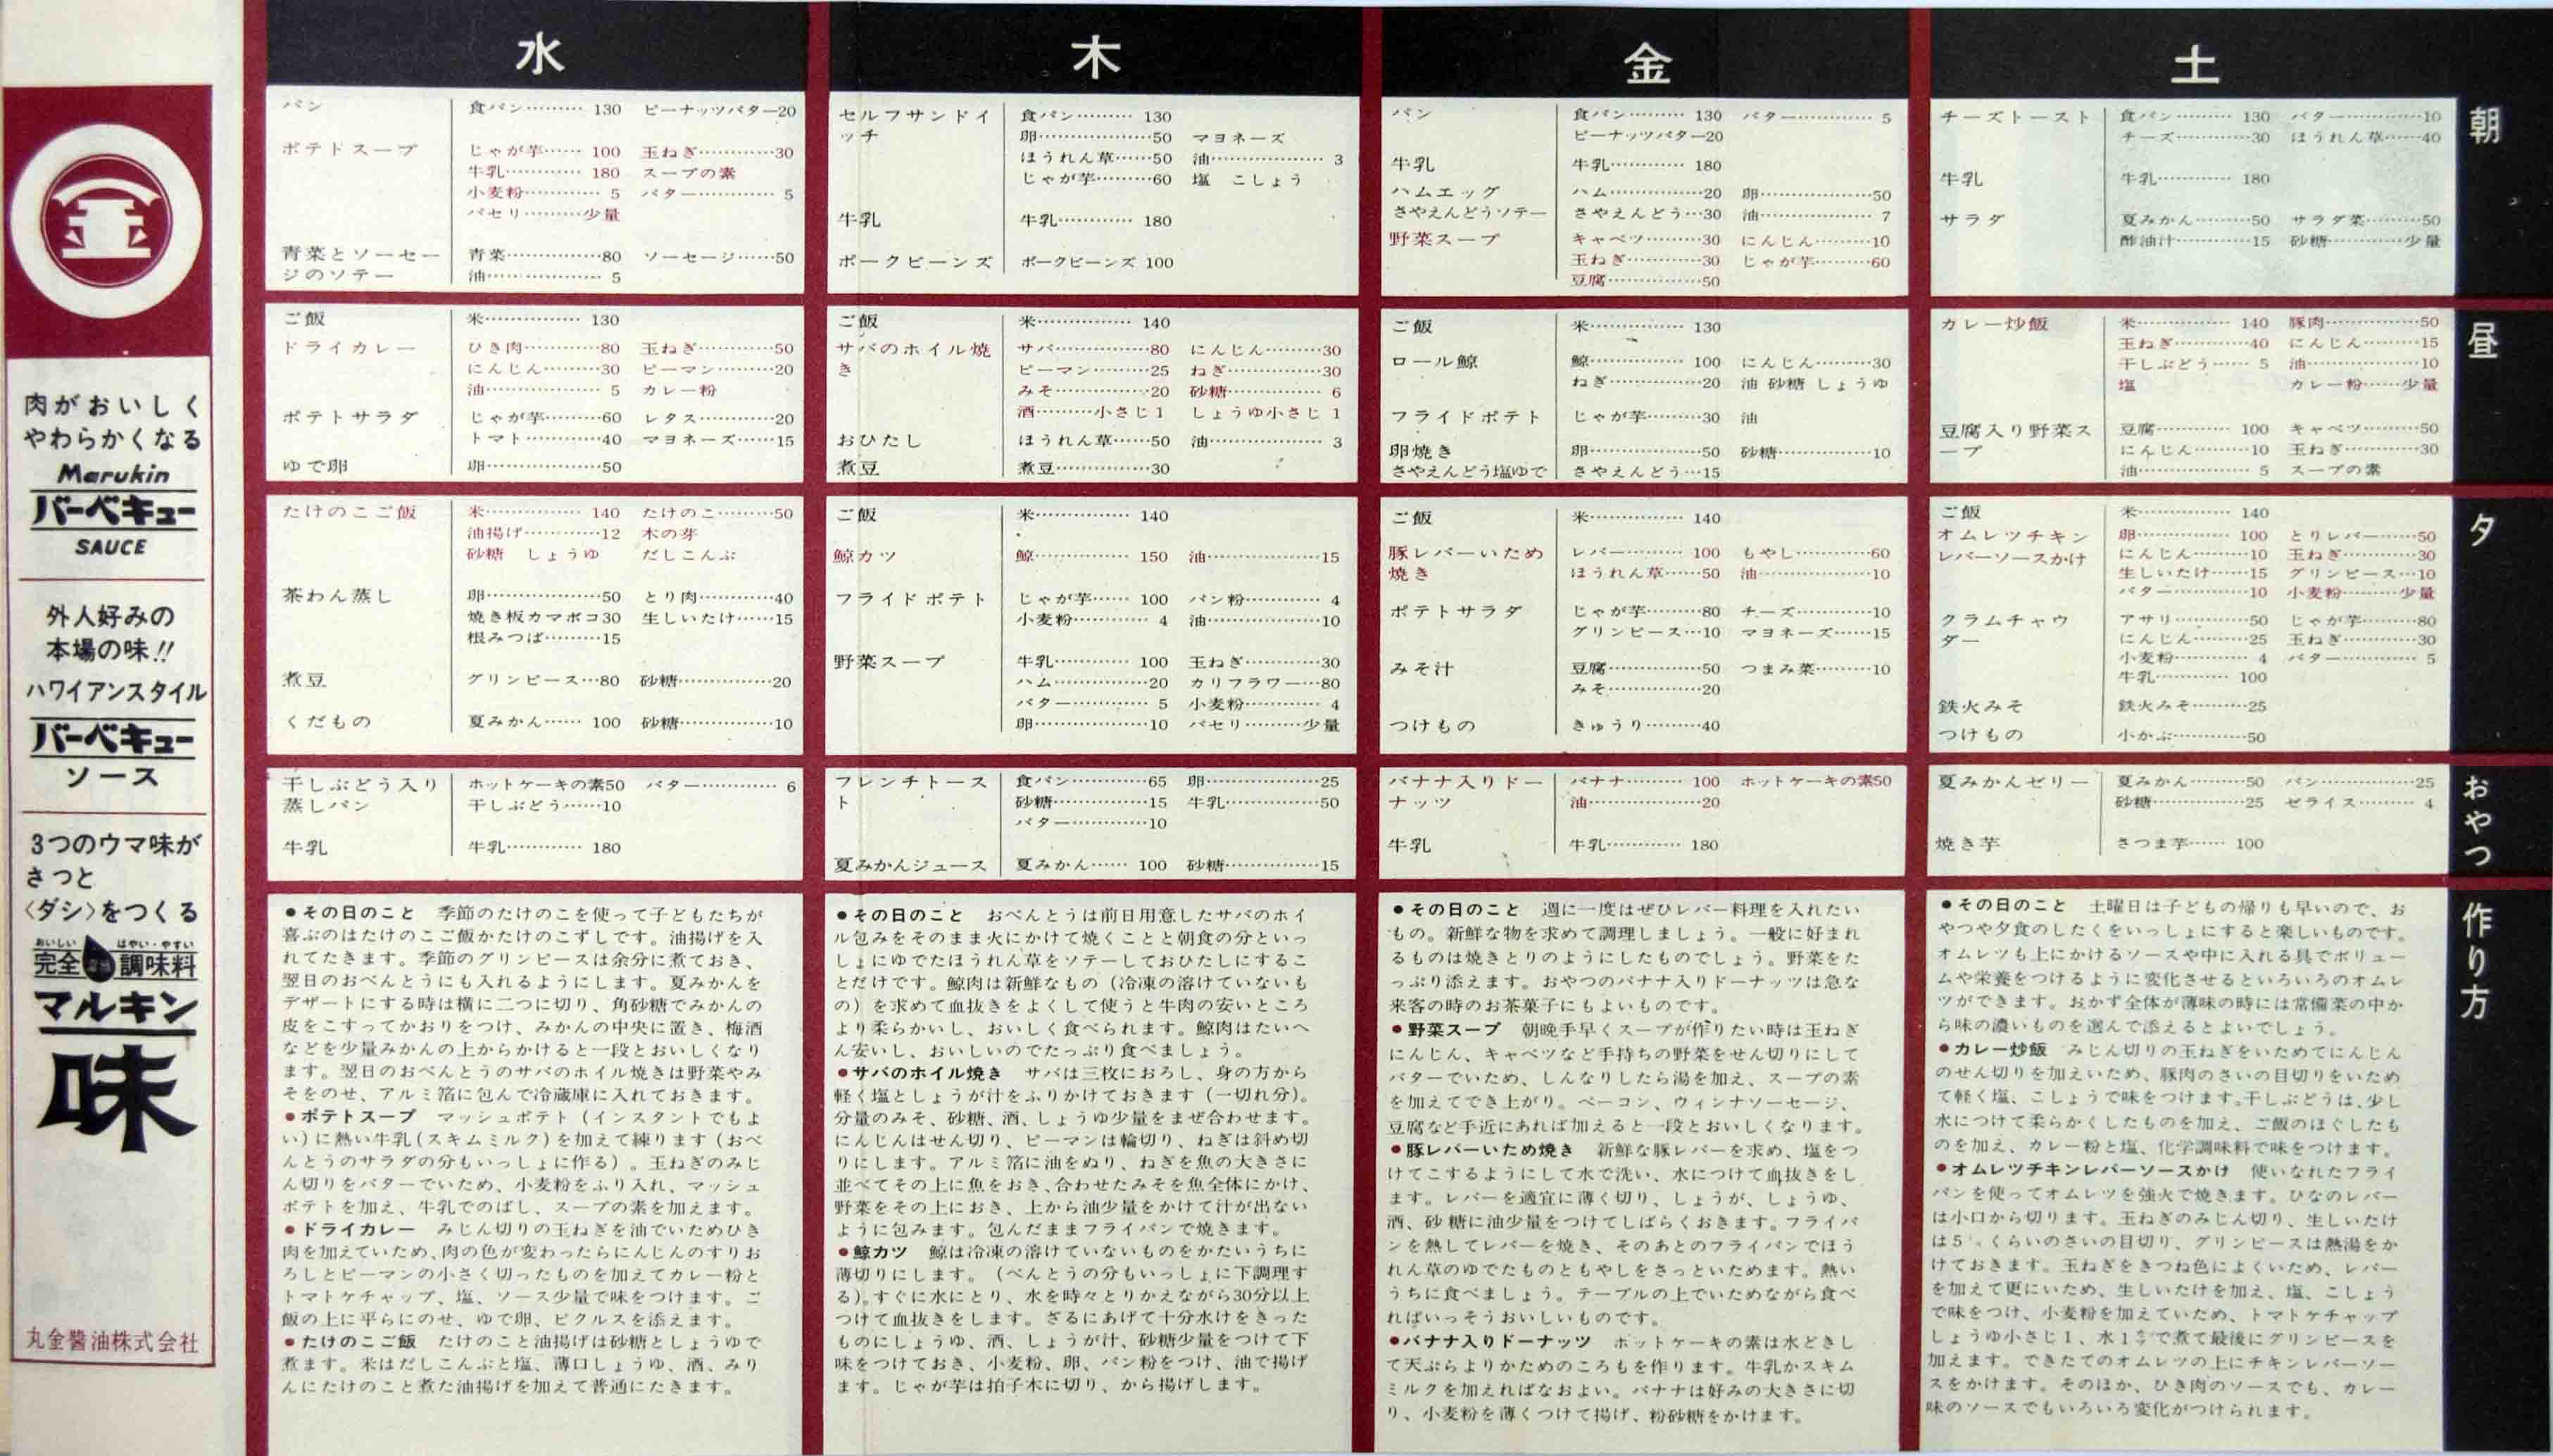 肉がおいしく
やわらかくなる
Marukin
バーベキュー
SAUCE
外人好みの
本場の味!!
ハワイアンスタイル
バーベキュー
ソース
3つのウマ味が
さっと
〈ダシ〉をつくる
おいしい はやい・やすい
完全 調味料
マルキン
味
丸金醬油株式会社
水
パン 食パン……… 130 ピーナッツバター20
ポテトスープ じゃが芋…… 100 玉ねぎ…………30
牛乳………… 180 スープの素
小麦粉………… 5 バター………… 5
パセリ………少量
青菜とソーセー 青菜……………80 ソーセージ……50
ジのソテー 油……………… 5
ご飯 米…………… 130
ドライカレー ひき肉…………80 玉ねぎ…………50
にんじん………30 ピーマン………20
油……………… 5 カレー粉
ポテトサラダ じゃが芋………60 レタス…………20
トマト…………40 マヨネーズ……15
ゆで卵 卵………………50
たけのこご飯 米…………… 140 たけのこ………50
油揚げ…………12 木の芽
砂糖 しょうゆ だしこんぶ
茶わん蒸し 卵………………50 とり肉…………40
焼き板カマボコ30 生しいたけ……15
根みつば………15
煮豆 グリンピース…80 砂糖……………20
くだもの 夏みかん…… 100 砂糖……………10
干しぶどう入り ホットケーキの素50 バター………… 6
蒸しパン 干しぶどう……10
牛乳 牛乳………… 180
●その日のこと 季節のたけのこを使って子どもたちが
喜ぶのはたけのこご飯かたけのこずしです。油揚げを入
れてたきます。季節のグリンピースは余分に煮ておき、
翌日のおべんとうにも入れるようにします。夏みかんを
デザートにする時は横に二つに切り、角砂糖でみかんの
皮をこすってかおりをつけ、みかんの中央に置き、梅酒
などを少量みかんの上からかけると一段とおいしくなり
ます。翌日のおべんとうのサバのホイル焼きは野菜やみ
そをのせ、アルミ箔に包んで冷蔵庫に入れておきます。
●ポテトスープ マッシュポテト(インスタントでもよ
い)に熱い牛乳(スキムミルク)を加えて練ります(おべ
んとうのサラダの分もいっしょに作る)。玉ねぎのみじ
ん切りをバターでいため、小麦粉をふり入れ、マッシュ
ポテトを加え、牛乳でのばし、スープの素を加えます。
●ドライカレー みじん切りの玉ねぎを油でいためひき
肉を加えていため、肉の色が変わったらにんじんのすりお
ろしとピーマンの小さく切ったものを加えてカレー粉と
トマトケチャップ、塩、ソース少量で味をつけます。ご
飯の上に平らにのせ、ゆで卵、ピクルスを添えます。
●たけのこご飯 たけのこと油揚げは砂糖としょうゆで
煮ます。米はだしこんぶと塩、薄口しょうゆ、酒、みり
んにたけのこと煮た油揚げを加えて普通にたきます。
木
セルフサンドイ 食パン……… 130
ッチ 卵………………50 マヨネーズ
ほうれん草……50 油……………… 3
じゃが芋………60 塩 こしょう
牛乳 牛乳………… 180
ポークビーンズ ポークビーンズ 100
ご飯 米…………… 140
サバのホイル焼 サバ……………80 にんじん………30
き ピーマン………25 ねぎ……………30
みそ……………20 砂糖…………… 6
酒………小さじ1 しょうゆ小さじ 1
おひたし ほうれん草……50 油……………… 3
煮豆 煮豆……………30
ご飯 米…………… 140
鯨カツ 鯨…………… 150 油………………15
フライドポテト じゃが芋…… 100 パン粉………… 4
小麦粉………… 4 油………………10
野菜スープ 牛乳………… 100 玉ねぎ…………30
ハム……………20 カリフラワー…80
バター………… 5 小麦粉………… 4
卵………………10 パセリ………少量
フレンチトース 食パン…………65 卵………………25
ト 砂糖……………15 牛乳……………50
バター…………10
夏みかんジュース 夏みかん…… 100 砂糖……………15
●その日のこと おべんとうは前日用意したサバのホイ
ル包みをそのまま火にかけて焼くことと朝食の分といっ
しょにゆでたほうれん草をソテーしておひたしにするこ
とだけです。鯨肉は新鮮なもの(冷凍の溶けていないも
の)を求めて血抜きをよくして使うと牛肉の安いところ
より柔らかいし、おいしく食べられます。鯨肉はたいへ
ん安いし、おいしいのでたっぷり食べましょう。
●サバのホイル焼き サバは三枚におろし、身の方から
軽く塩としょうが汁をふりかけておきます(一切れ分)。
分量のみそ、砂糖、酒、しょうゆ少量をまぜ合わせます。
にんじんはせん切り、ピーマンは輪切り、ねぎは斜め切
りにします。アルミ箔に油をぬり、ねぎを魚の大きさに
並べてその上に魚をおき、合わせたみそを魚全体にかけ、
野菜をその上におき、上から油少量をかけて汁が出ない
ように包みます。包んだままフライパンで焼きます。
●鯨カツ 鯨は冷凍の溶けていないものをかたいうちに
薄切りにします。(べんとうの分もいっしょに下調理す
る)。すぐに水にとり、水を時々とりかえながら30分以上
つけて血抜きをします。ざるにあげて十分水けをきった
ものにしょうゆ、酒、しょうが汁、砂糖少量をつけて下
味をつけておき、小麦粉、卵、パン粉をつけ、油で揚げ
ます。じゃが芋は拍子木に切り、から揚げします。
金
パン 食パン……… 130 バター………… 5
ピーナッツバター20
牛乳 牛乳………… 180
ハムエッグ ハム……………20 卵………………50
さやえんどうソテー さやえんどう…30 油……………… 7
野菜スープ キャベツ………30 にんじん………10
玉ねぎ…………30 じゃが芋………60
豆腐……………50
ご飯 米…………… 130
ロール鯨 鯨…………… 100 にんじん………30
ねぎ……………20 油 砂糖 しょうゆ
フライドポテト じゃが芋………30 油
卵焼き 卵………………50 砂糖……………10
さやえんどう塩ゆで さやえんどう…15
ご飯 米…………… 140
豚レバーいため レバー……… 100 もやし…………60
焼き ほうれん草……50 油………………10
ポテトサラダ じゃが芋………80 チーズ…………10
グリンピース…10 マヨネーズ……15
みそ汁 豆腐……………50 つまみ菜………10
みそ……………20
つけもの きゅうり………40
バナナ入りドー バナナ……… 100 ホットケーキの素50
ナッツ 油………………20
牛乳 牛乳………… 180
●その日のこと 週に一度はぜひレバー料理を入れたい
もの。新鮮な物を求めて調理しましょう。一般に好まれ
るものは焼きとりのようにしたものでしょう。野菜をた
っぷり添えます。おやつのバナナ入りドーナッツは急な
来客の時のお茶菓子にもよいものです。
●野菜スープ 朝晩手早くスープが作りたい時は玉ねぎ
にんじん、キャベツなど手持ちの野菜をせん切りにして
バターでいため、しんなりしたら湯を加え、スープの素
を加えてでき上がり。ベーコン、ウィンナソーセージ、
豆腐など手近にあれば加えると一段とおいしくなります。
●豚レバーいため焼き 新鮮な豚レバーを求め、塩をつ
けてこするようにして水で洗い、水につけて血抜きをし
ます。レバーを適宜に薄く切り、しょうが、しょうゆ、
酒、砂糖に油少量をつけてしばらくおきます。フライパ
ンを熱してレバーを焼き、そのあとのフライパンでほう
れん草のゆでたものともやしをさっといためます。熱い
うちに食べましょう。テーブルの上でいためながら食べ
ればいっそうおいしいものです。
●バナナ入りドーナッツ ホットケーキの素は水どきし
て天ぷらよりかためのころもを作ります。牛乳かスキム
ミルクを加えればなおよい。バナナは好みの大きさに切
り、小麦粉を薄くつけて揚げ、粉砂糖をかけます。
土
チーズトースト 食パン……… 130 バター…………10
チーズ…………30 ほうれん草……40
牛乳 牛乳………… 180
サラダ 夏みかん………50 サラダ菜………50
酢油汁…………15 砂糖…………少量
カレー炒飯 米…………… 140 豚肉……………50
玉ねぎ…………40 にんじん………15
干しぶどう…… 5 油………………10
塩 カレー粉……少量
豆腐入り野菜ス 豆腐………… 100 キャベツ………50
ープ にんじん………10 玉ねぎ…………30
油……………… 5 スープの素
ご飯 米…………… 140
オムレツチキン 卵…………… 100 とりレバー……50
レバーソースかけ にんじん………10 玉ねぎ…………30
生しいたけ……15 グリンピース…10
バター…………10 小麦粉………少量
クラムチャウ アサリ…………50 じゃが芋………80
ダー にんじん………25 玉ねぎ…………30
小麦粉………… 4 バター………… 5
牛乳………… 100
鉄火みそ 鉄火みそ………25
つけもの 小かぶ…………50
夏みかんゼリー 夏みかん………50 パン……………25
砂糖……………25 ゼライス……… 4
焼き芋 さつま芋…… 100
●その日のこと 土曜日は子どもの帰りも早いので、お
やつや夕食のしたくをいっしょにすると楽しいものです。
オムレツも上にかけるソースや中に入れる具でボリュー
ムや栄養をつけるように変化させるといろいろのオムレ
ツができます。おかず全体が薄味の時には常備菜の中か
ら味の濃いものを選んで添えるとよいでしょう。
●カレー炒飯 みじん切りの玉ねぎをいためてにんじん
のせん切りを加えいため、豚肉のさいの目切りをいため
て軽く塩、こしょうで味をつけます。干しぶどうは、少し
水につけて柔らかくしたものを加え、ご飯のほぐしたも
のを加え、カレー粉と塩、化学調味料で味をつけます。
●オムレツチキンレバーソースかけ 使いなれたフライ
パンを使ってオムレツを強火で焼きます。ひなのレバー
は小口から切ります。玉ねぎのみじん切り、生しいたけ
は5 くらいのさいの目切り、グリンピースは熱湯をか
けておきます。玉ねぎをきつね色によくいため、レバー
を加えて更にいため、生しいたけを加え、塩、こしょう
で味をつけ、小麦粉を加えていため、トマトケチャップ
しょうゆ小さじ1、水1 で煮て最後にグリンピースを
加えます。できたてのオムレツの上にチキンレバーソー
スをかけます。そのほか、ひき肉のソースでも、カレー
味のソースでもいろいろ変化がつけられます。
朝
昼
夕
おやつ
作り方